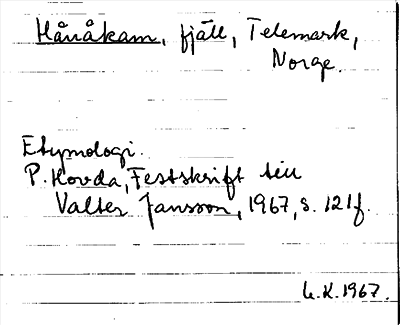 Hånåkam, fjäll, Telemark,
Norge.
Etymologi.
P. Hovda, Festskrift till
Valter Jansson, 1967, s. 121f.
L.K. 1967.